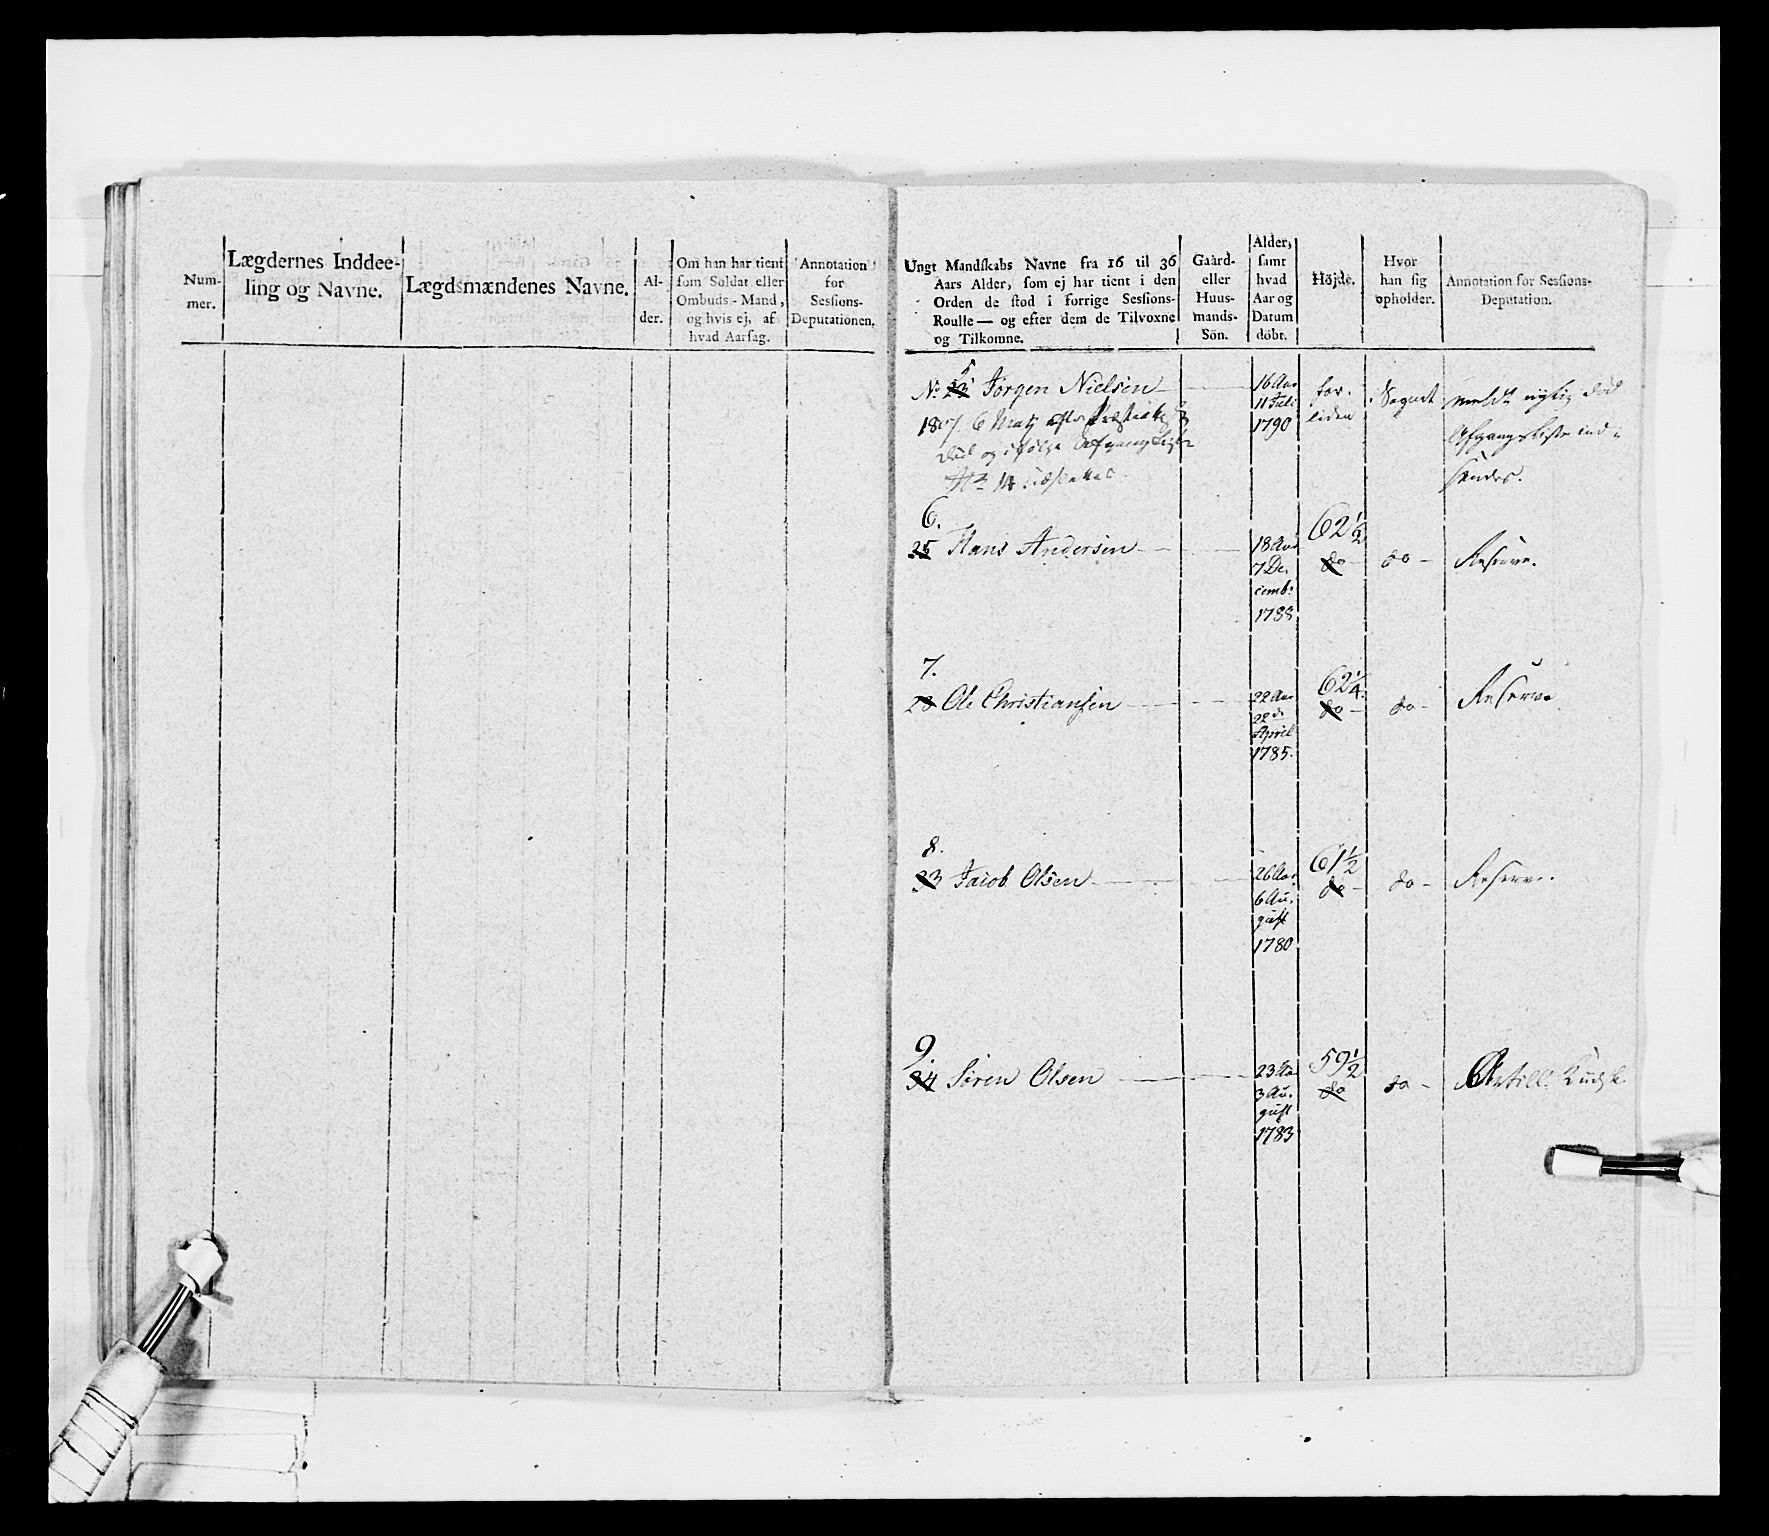 Num-
mer.
Lægdernes Inddee-
ling og Navne.
Lægdsmændenes Navne.
Al-
der.
Om han har tient
som Soldat eller
Ombuds-Mand,
og hvis ej, af
hvad Aarsag.
Annotation
for
Sessions-
Deputationen.
Ungt Mandskabs Navne fra 16 til 36
Aars Alder, som ej har tient i den
Orden de stod i forrige Sessions-
Roulle — og efter dem de Tilvoxne
og Tilkomne.
Gaard-
eller
Huus-
mands-
Sön.
Alder,
samt
hvad
Aar og
Datum
döbt.
Höjde.
Hvor
han sig
opholder.
Annotation for Sessions-
Deputation.
5
No 23 Jörgen Nielsen
16 Aar
11 Juli
1790
for-
liden
Sognet
død
Afgangsliste ind-
sendes.
1807 6
død og ifølge Afgang Liste
No 14 udslettet.
6.
25 Hans Andersen
18 Aar
7 De-
cemb:
1788
62 1/2
do
do
Reserve.
7.
28 Ole Christiansen
22 Aar
22 d
April
1785.
62 1/4
do
do
Reserve
8.
33 Jacob Olsen
26 Aar
6 Au-
gust
1780
61 1/2
do
do
Reserve.
9.
34 Sören Olsen
23 Aar
3 Au-
gust
1783
59 1/2
do
do
Artill: Kudsk.